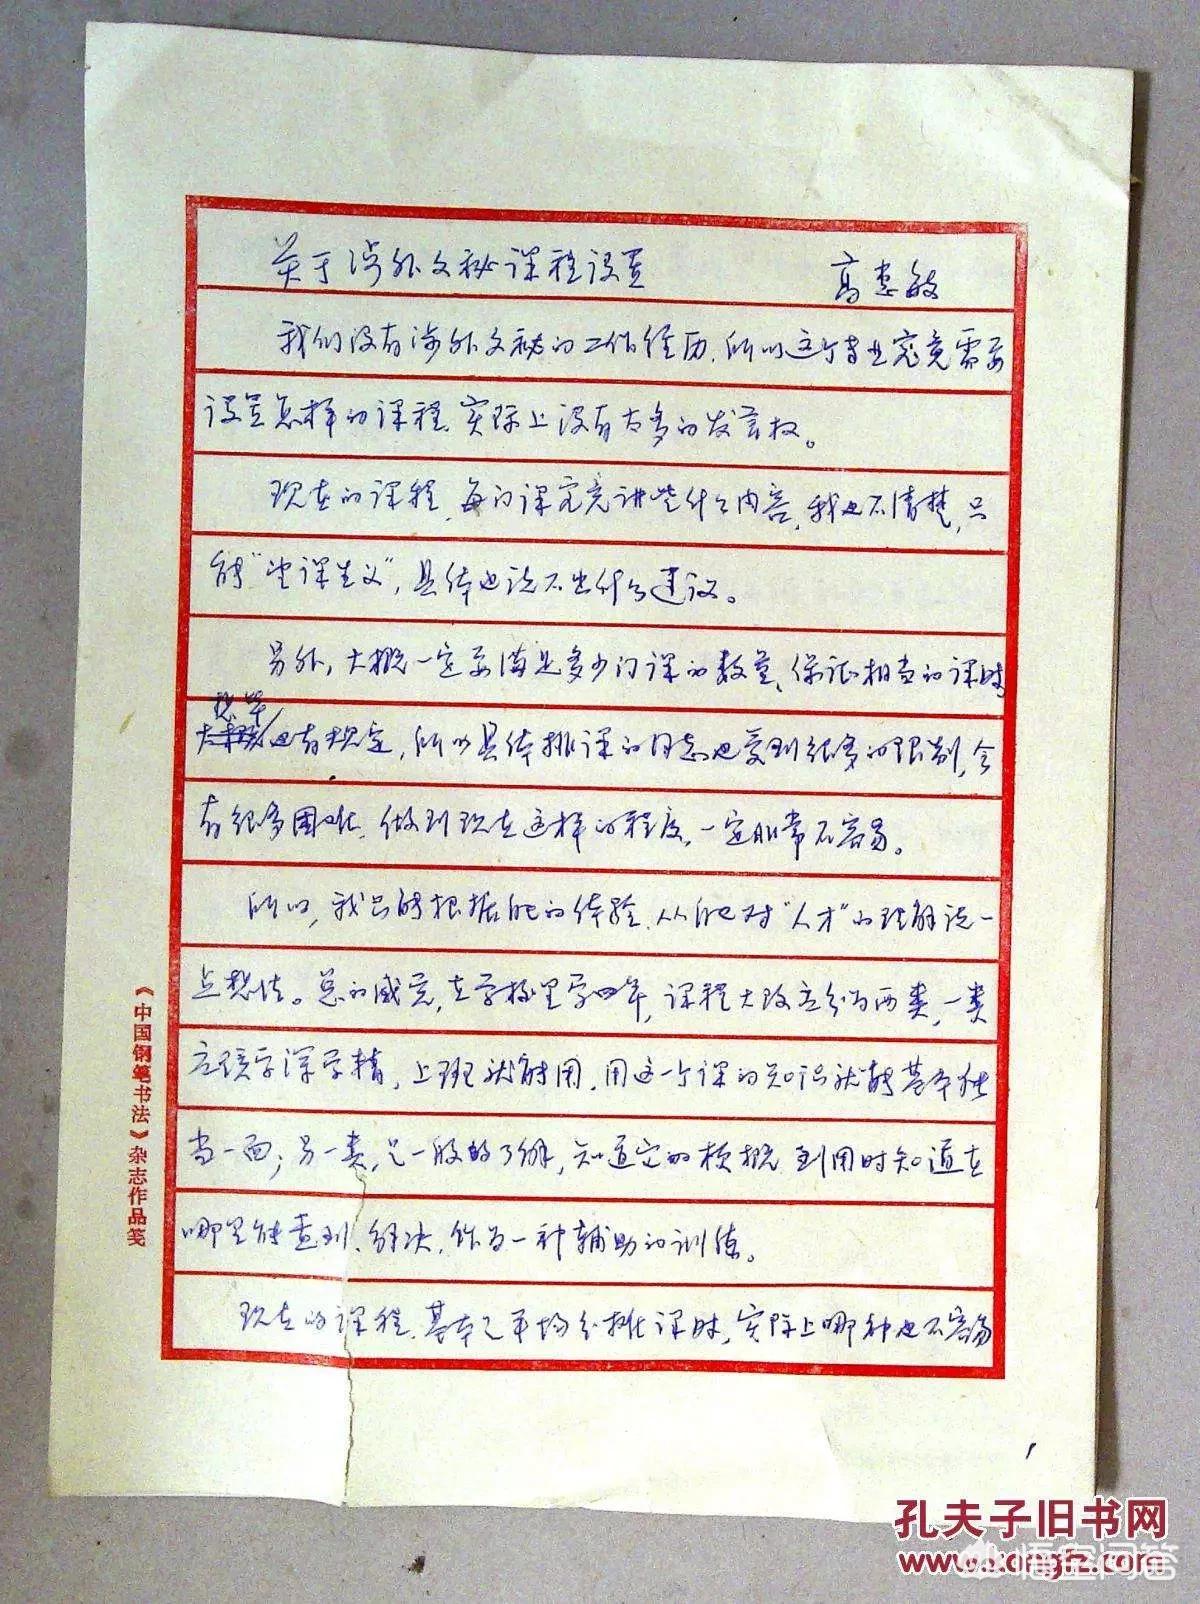 关于涉外文秘课程设置 高惠敏
我们没有涉外文秘的工作经历,所以这个专业究竟需要
设置怎样的课程,实际上没有太多的发言权。
现在的课程,每门课究竟讲些什么内容,我也不清楚,只
能"望课生义",具体也说不出什么建议。
另外,大概一定要满足多少门课的数量、保证相当的课时
也有规定,所以具体排课的同志也受到很多的限制,会
有很多困难,做到现在这样的程度,一定非常不容易。
所以,我只能根据自己的体验,从自己对"人才"的理解说一
点想法。总的感觉,在学校里学四年,课程大致应分为两类,一类
应该学深学精,上班就能用,用这一个课的知识就能基本独
当一面;另一类,是一般的了解,知道它的梗概,到用时知道在
哪里能查到、解决,作为一种辅助的训练。
现在的课程,基本是平均分排课时,实际上哪种也不容易
《中国钢笔书法》杂志作品笺
1
孔夫子旧书网
悟空问答